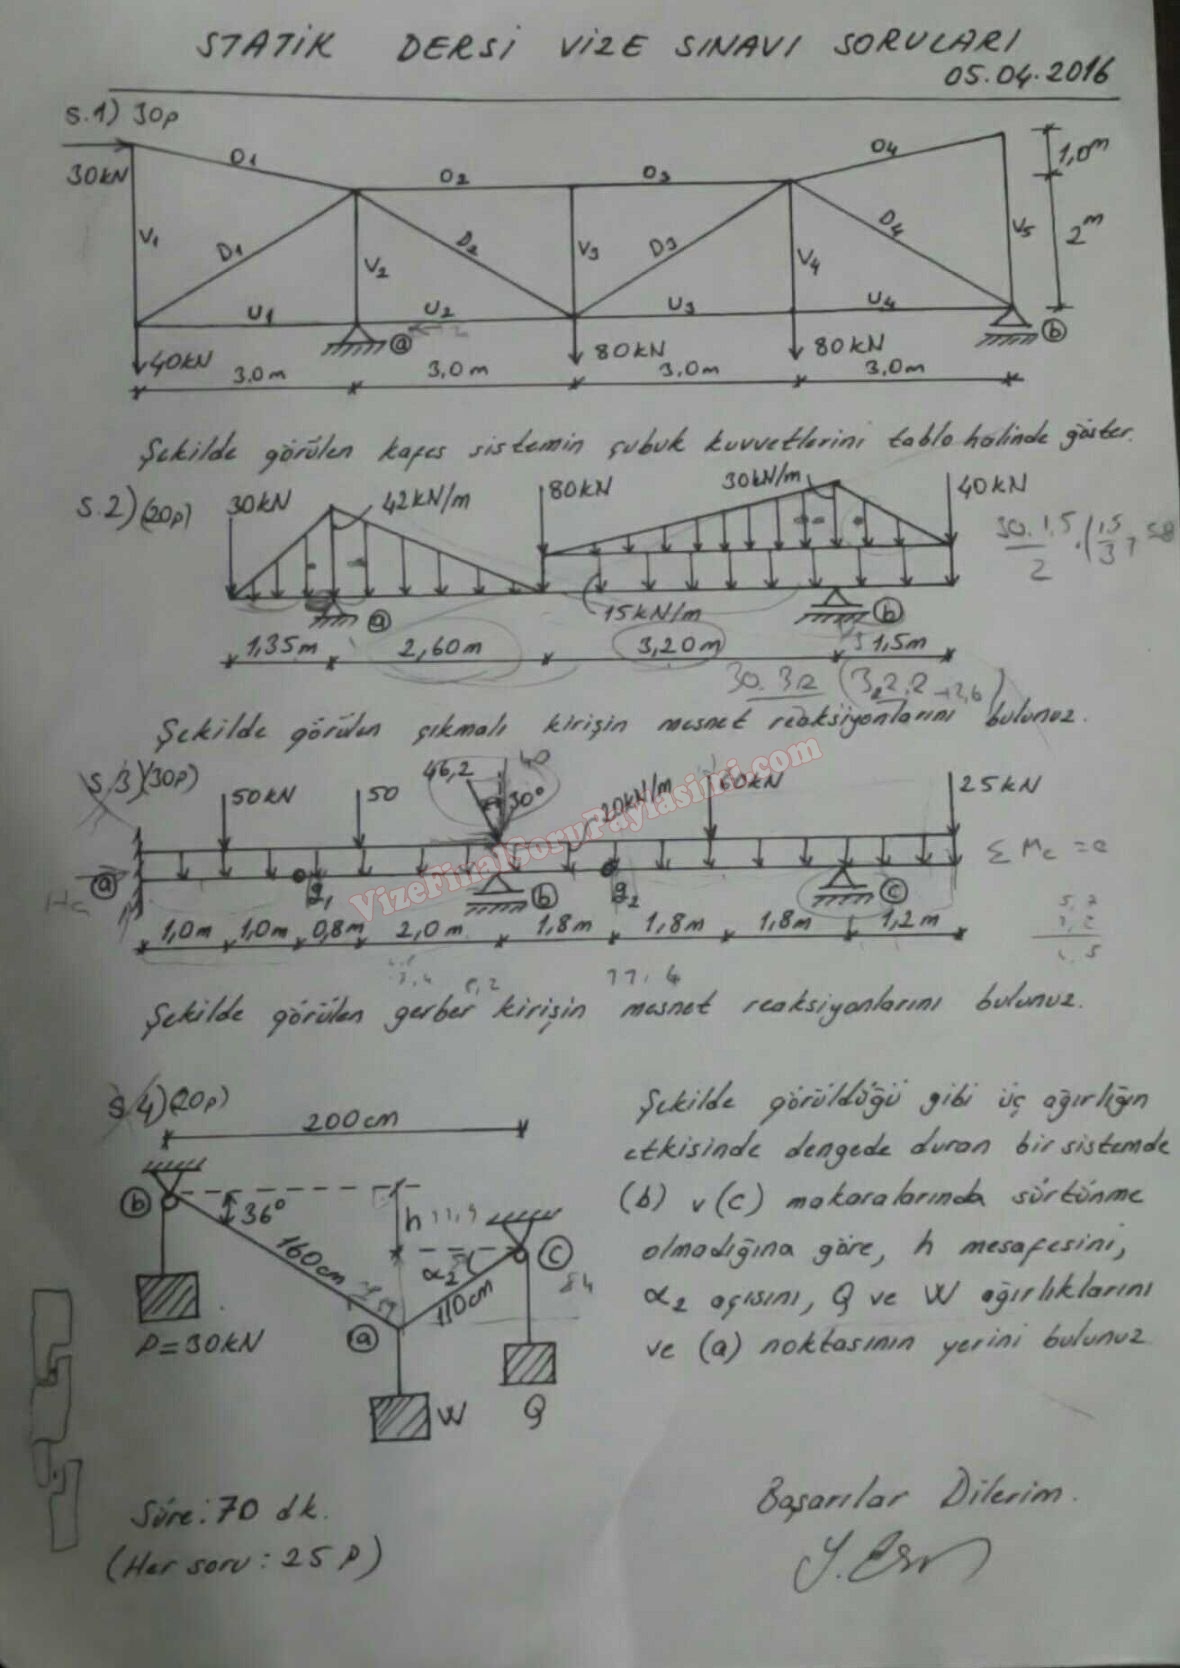 STATİK DERSİ VİZE SINAVI SORULARI
05.04.2016
S.1) 30p
30kN
O1
O2
O3
O4
1,0m
V1
D1
V2
D2
V3
D3
V4
D4
V5
2m
U1
U2
U3
U4
a
b
40kN
80kN
80kN
3.0m
3,0m
3,0m
3,0m
Şekilde görülen kafes sistemin çubuk kuvvetlerini tablo halinde göster.
S.2) (20p)
30kN
42kN/m
80kN
30kN/m
40kN
a
15kN/m
b
1,35m
2,60m
3,20m
1,5m
Şekilde görülen çıkmalı kirişin mesnet reaksiyonlarını bulunuz.
S.3) (30p)
50kN
50
46,2
40
30°
20kN/m
60kN
25kN
a
g1
b
g2
c
Σ Mc = 0
1,0m
1,0m
0,8m
2,0m
1,8m
1,8m
1,8m
1,2m
11.4
Şekilde görülen gerber kirişin mesnet reaksiyonlarını bulunuz.
S.4) (20p)
200cm
b
36°
160cm
h
α2
110cm
c
a
P=30kN
W
Q
Şekilde görüldüğü gibi üç ağırlığın
etkisinde dengede duran bir sistemde
(b) v (c) makaralarında sürtünme
olmadığına göre, h mesafesini,
α2 açısını, Q ve W ağırlıklarını
ve (a) noktasının yerini bulunuz
Süre: 70 dk.
(Her soru: 25 P)
Başarılar Dilerim.
VizeFinalSoruPaylasimi.com